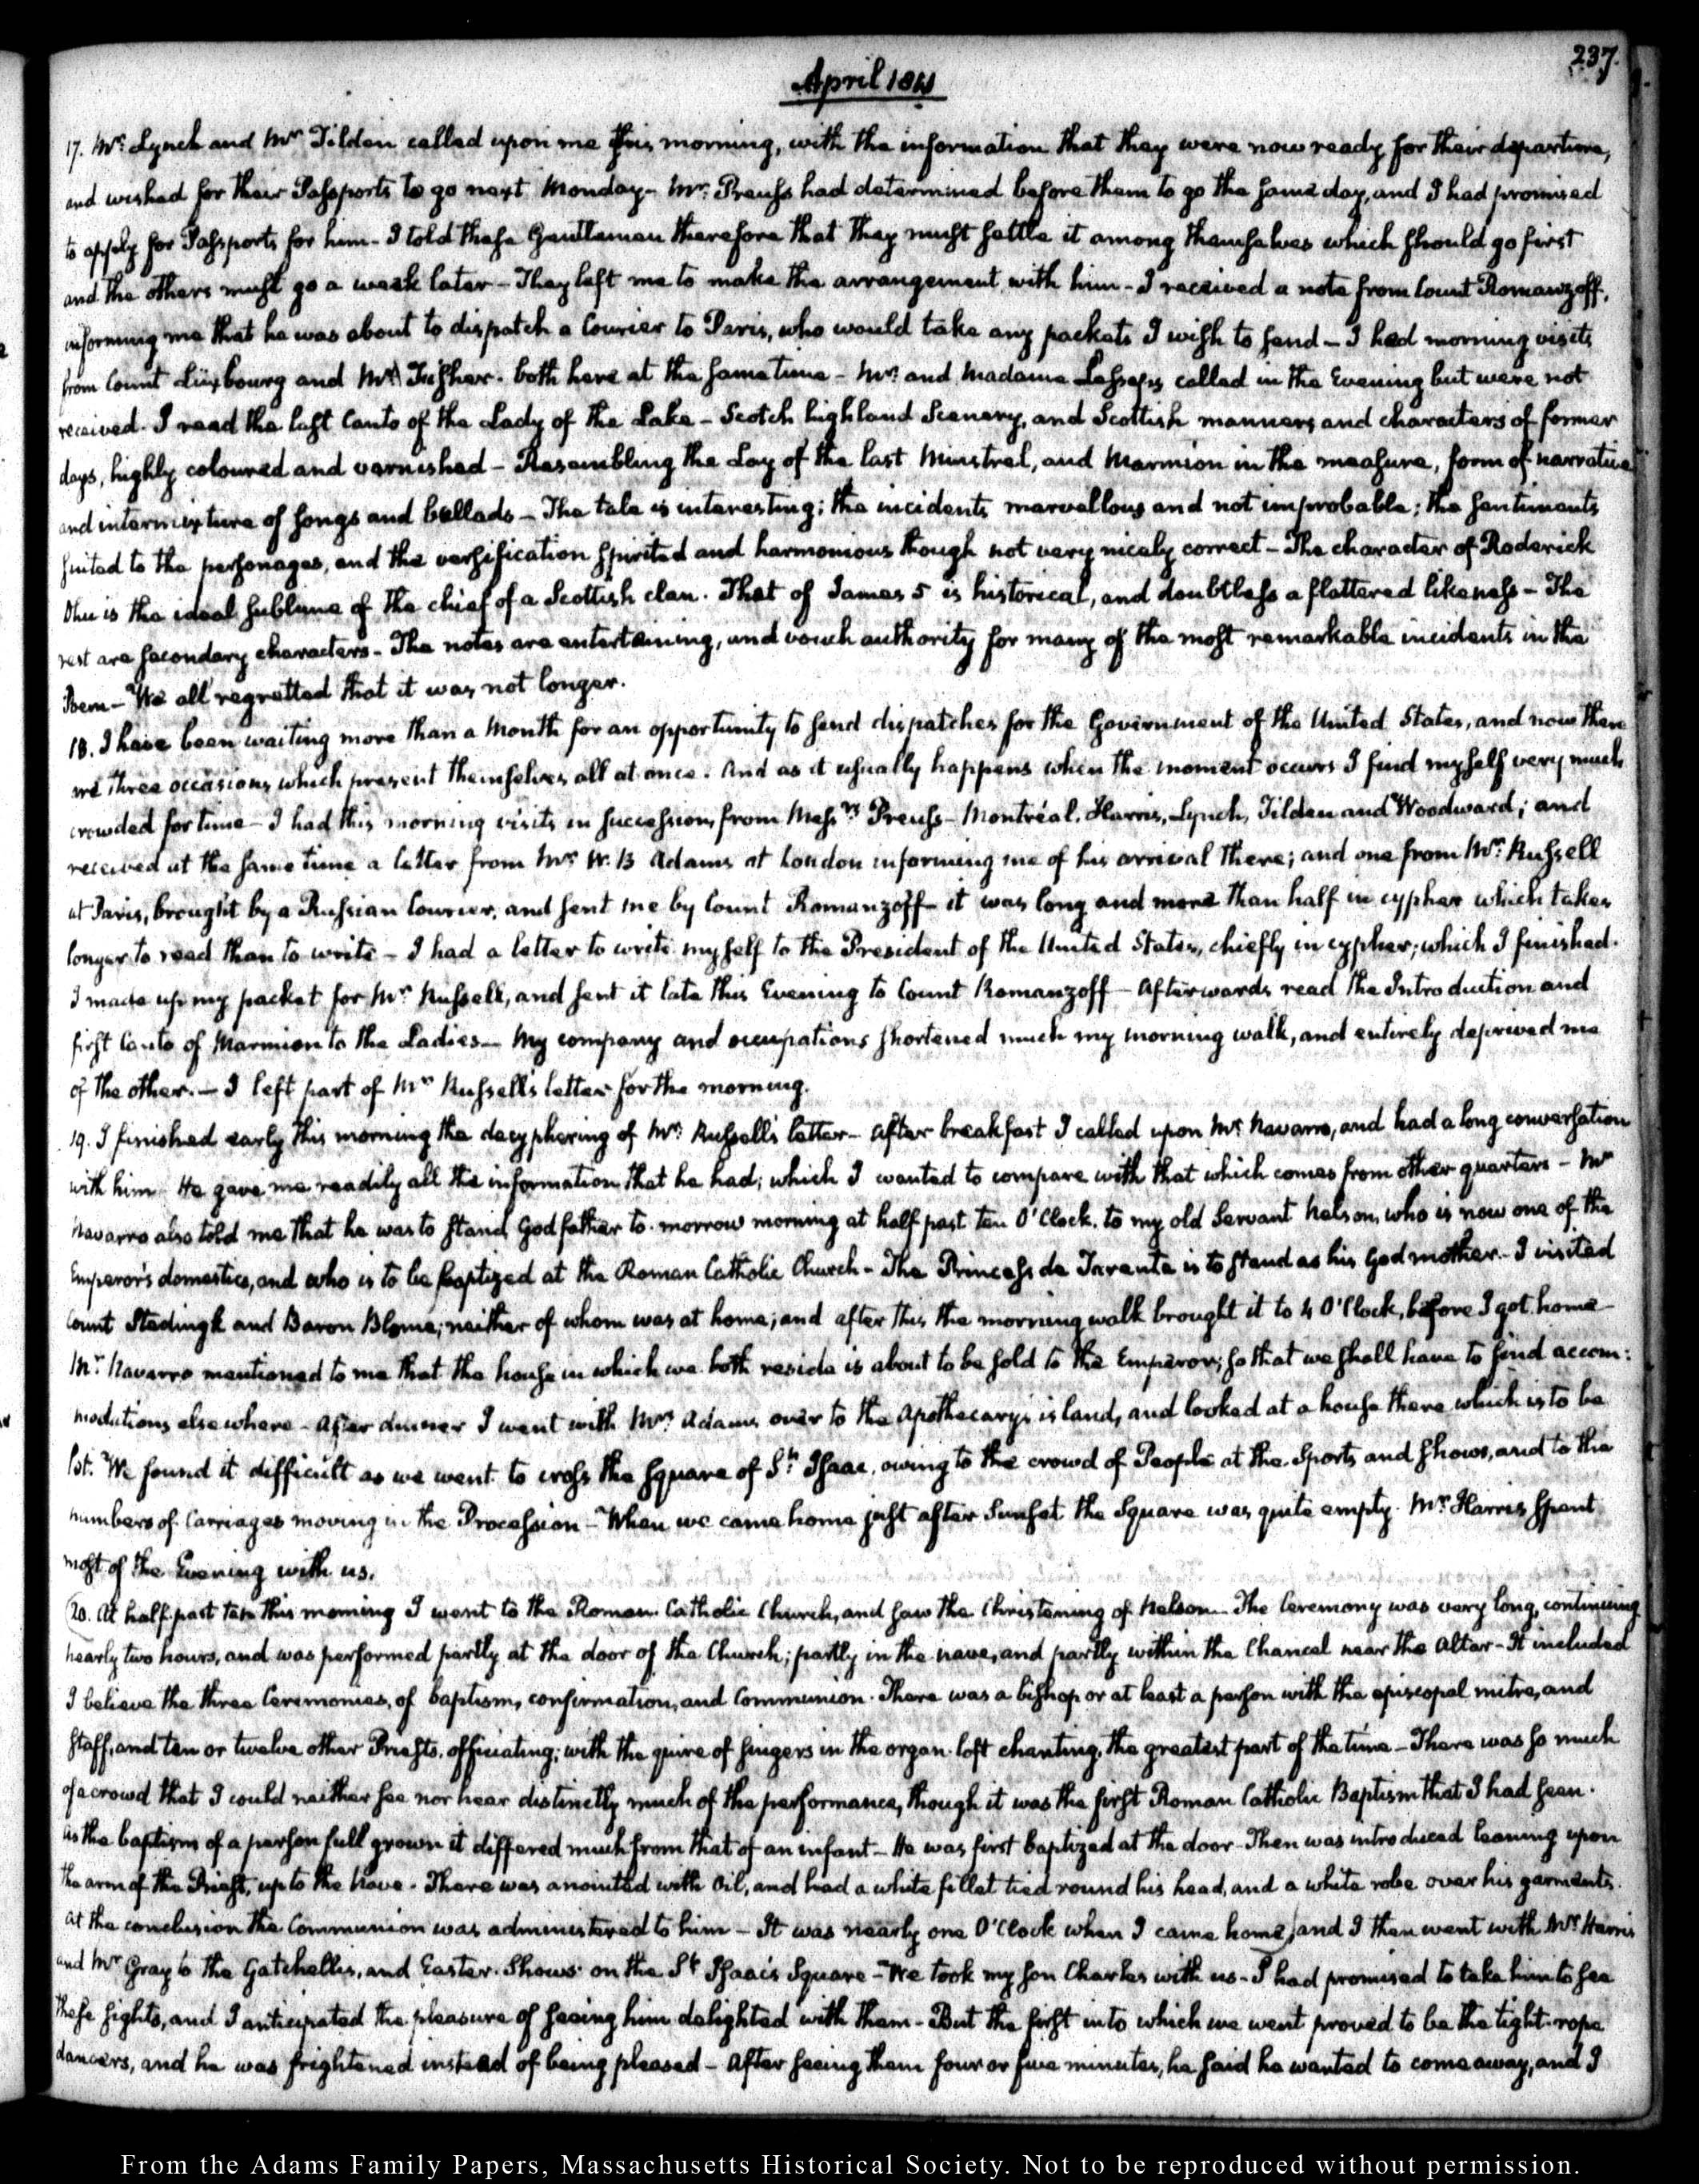 237.
April 1811
17. Mr. Lynch and Mr Tilden called upon me this morning, with the information that they were now ready for their departure,
and wished for their Passports to go next Monday - Mr. Preuss had determined before them to go the same day, and I had promised
to apply for Passports for him - I told these Gentlemen therefore that they must settle it among themselves which should go first
and the others must go a week later - They left me to make the arrangement with him - I received a note from Count Romanzoff,
informing me that he was about to dispatch a Courier to Paris, who would take any packets I wish to send - I had morning visits
from Count Luxbourg and Mr Fisher. both here at the same time - Mr. and Madame Lesseps called in the Evening but were not
received. I read the last Canto of the Lady of the Lake - Scotch highland Scenery, and Scottish manners and characters of former
days, highly coloured and varnished - Resembling the Lay of the last Minstrel, and Marmion in the measure, form of narrative
and intermixture of songs and ballads - The tale is interesting; the incidents marvellous and not improbable; the sentiments
suited to the personages, and the versification spirited and harmonious though not very nicely correct - The character of Roderick
Dhu is the ideal sublime of the chief of a Scottish clan. That of James 5 is historical, and doubtless a flattered likeness - The
rest are secondary characters - The notes are entertaining, and vouch authority for many of the most remarkable incidents in the
Poem - We all regretted that it was not longer.
18. I have been waiting more than a Month for an opportunity to send dispatches for the Government of the United States, and now there
are three occasions which present themselves all at once. And as it usually happens when the moment occurs I find myself very much
crowded for time - I had this morning visits in succession, from Messrs Preuss - Montréal. Harris, Lynch, Tilden and Woodward; and
received at the same time a letter from Mr W. B Adams at London informing me of his arrival there; and one from Mr. Russell
at Paris, brought by a Russian Courier, and sent me by Count Romanzoff - it was long and more than half in cypher which takes
longer to read than to write - I had a letter to write myself to the President of the United States, chiefly in cypher; which I finished.
I made up my packet for Mr Russell, and sent it late this Evening to Count Romanzoff - Afterwards read the Introduction and
first Canto of Marmion to the Ladies - My company and occupations shortened much my morning walk, and entirely deprived me
of the other. - I left part of Mr Russell's letter for the morning.
19. I finished early this morning the decyphering of Mr. Russell's letter - After breakfast I called upon Mr. Navarro, and had a long conversation
with him - He gave me readily all the information that he had; which I wanted to compare with that which comes from other quarters - Mr
Navarro also told me that he was to stand Godfather to-morrow morning at half past ten O'Clock. to my old Servant Nelson, who is now one of the
Emperor's domestics, and who is to be baptized at the Roman Catholic Church - The Princess de Tarente is to stand as his Godmother - I visited
Count Stedingk and Baron Blome; neither of whom was at home; and after this the morning walk brought it to 4 O'Clock, before I got home -
Mr. Navarro mentioned to me that the house in which we both reside is about to be sold to the Emperor; so that we shall have to find accom:
modations elsewhere - After dinner I went with Mrs Adams over to the Apothecary's island, and looked at a house there which is to be
let. We found it difficult as we went to cross the square of St Isaac, owing to the crowd of People at the Sports and Shows, and to the
numbers of Carriages moving in the Procession - When we came home just after Sunset the Square was quite empty. Mr. Harris spent
most of the Evening with us.
20. At half past ten this morning I went to the Roman Catholic Church, and saw the Christening of Nelson - The Ceremony was very long, continuing
nearly two hours, and was performed partly at the door of the Church; partly in the nave, and partly within the Chancel near the Altar - It included
I believe the three Ceremonies, of baptism, confirmation, and Communion. There was a bishop or at least a person with the episcopal mitre, and
staff, and ten or twelve other Priests, officiating; with the quire of singers in the organ-loft chanting, the greatest part of the time - There was so much
of a crowd that I could neither see nor hear distinctly much of the performance, though it was the first Roman Catholic Baptism that I had seen.
As the baptism of a person full grown it differed much from that of an infant - He was first baptized at the door - Then was introduced leaning upon
the arm of the Priest, up to the Nave. There was anointed with Oil, and had a white fillet tied round his head, and a white robe over his garments.
At the conclusion the Communion was administered to him - It was nearly one O'Clock when I came home, and I then went with Mr Harris
and Mr Gray to the Gatchellis, and Easter Shows on the St Isaac's Square - We took my son Charles with us - I had promised to take him to see
these sights, and I anticipated the pleasure of seeing him delighted with them - But the first into which we went proved to be the tight-rope
dancers, and he was frightened instead of being pleased - After seeing them four or five minutes, he said he wanted to come away, and I
From the Adams Family Papers, Massachusetts Historical Society. Not to be reproduced without permission.